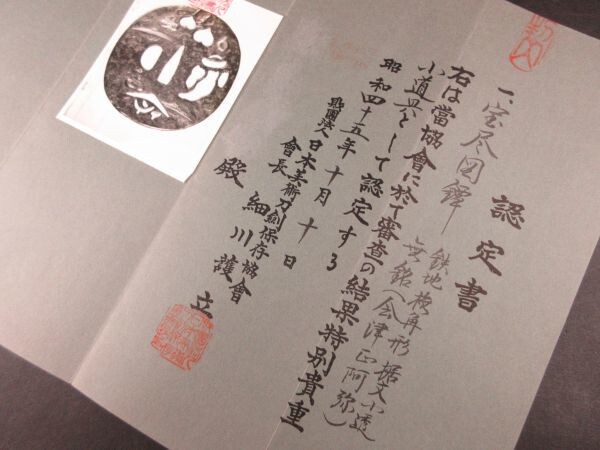 認定書
一、宝尽図鐔
鉄地 撫角形 据文小透
無銘(会津正阿弥)
右は當協會に於て審査の結果特別貴重
小道具として認定する
昭和四十五年十月十日
財團法人日本美術刀劍保存協會
會長 細川護立
殿